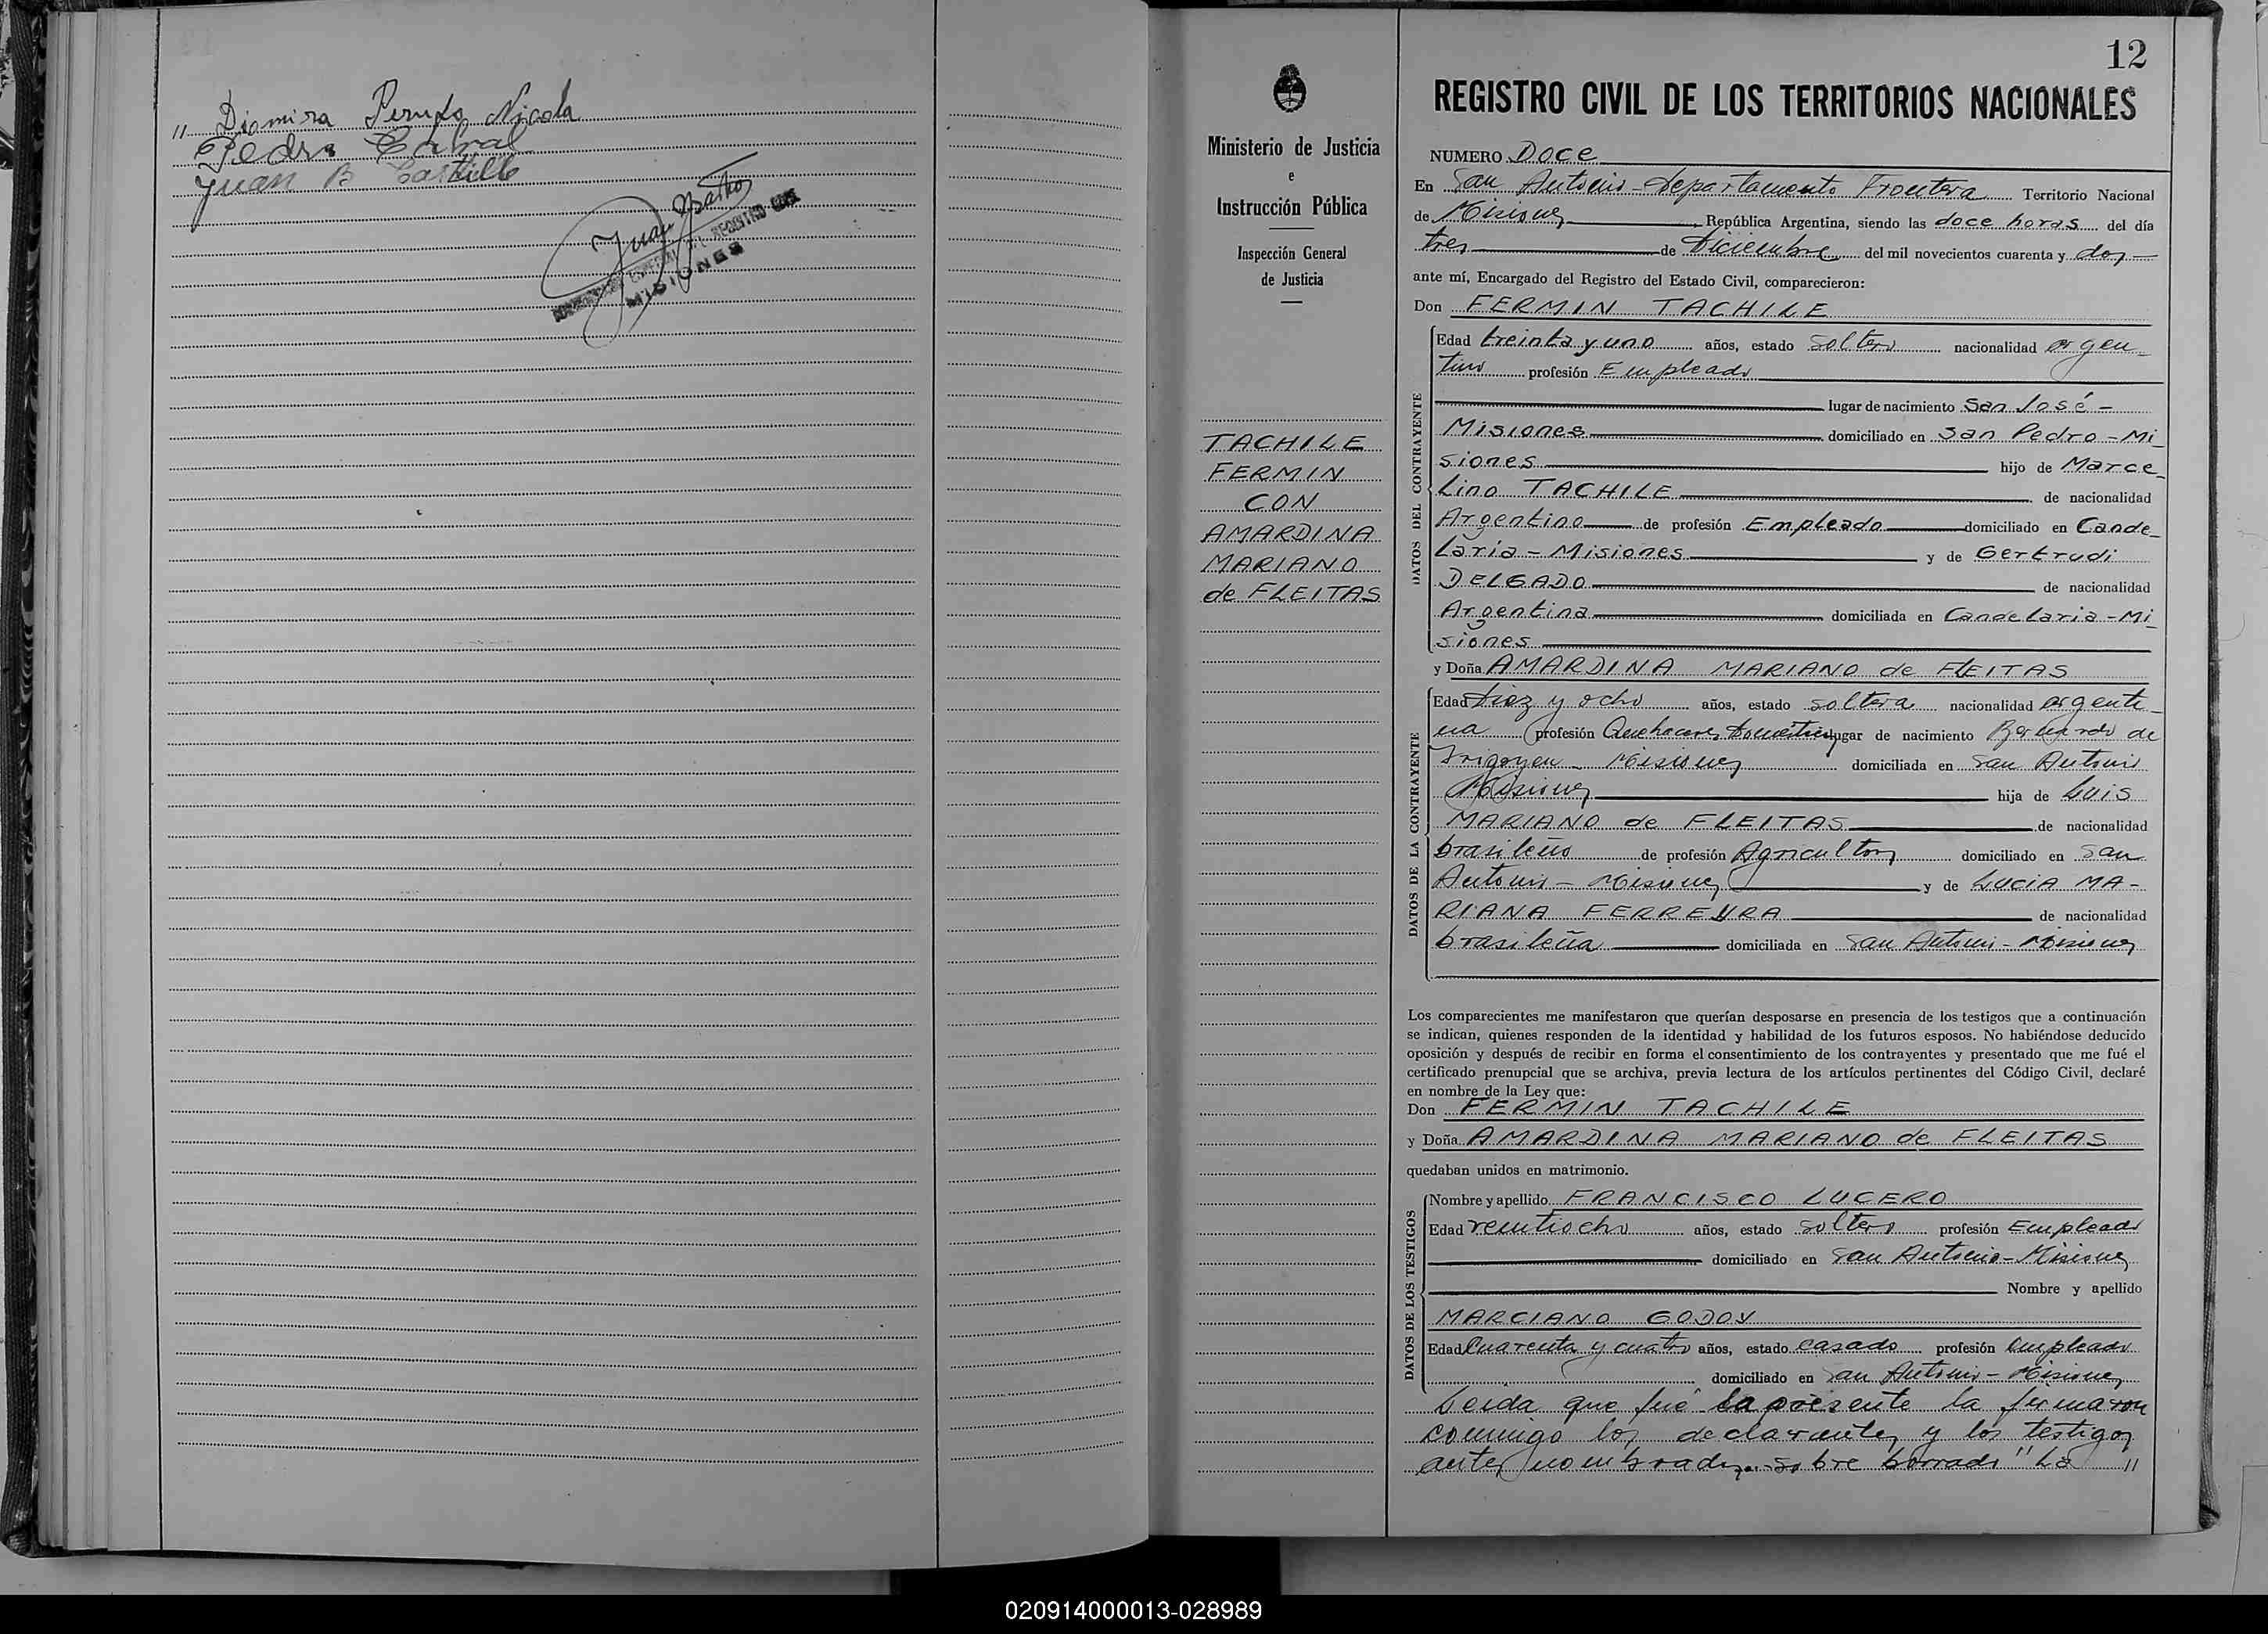 " Diomira Nicola
Pedro Cabral
Juan B Castillo
Juan
MISIONES
12
Ministerio de Justicia
e
Instrucción Pública
Inspección General
de Justicia
TACHILE
FERMIN
CON
AMARDINA
MARIANO
de FLEITAS
REGISTRO CIVIL DE LOS TERRITORIOS NACIONALES
NUMERO Doce
En San Antonio - Departamento Frontera Territorio Nacional
de Misiones República Argentina, siendo las doce horas del día
tres de Diciembre del mil novecientos cuarenta y dos
ante mí, Encargado del Registro del Estado Civil, comparecieron:
Don FERMIN TACHILE
DATOS DEL CONTRAYENTE
Edad treinta y uno años, estado soltero nacionalidad argen-
tino profesión Empleado
lugar de nacimiento San José -
Misiones domiciliado en San Pedro - Mi-
siones hijo de Marce-
lino TACHILE de nacionalidad
Argentino de profesión Empleado domiciliado en Cande-
laria - Misiones y de Gertrudi
DELGADO de nacionalidad
Argentina domiciliada en Candelaria - Mi-
siones
y Doña AMARDINA MARIANO de FLEITAS
DATOS DE LA CONTRAYENTE
Edad diez y ocho años, estado soltera nacionalidad argenti-
na profesión Quehaceres Domésticos lugar de nacimiento Bernardo de
Irigoyen - Misiones domiciliada en San Antonio
Misiones hija de Luis
MARIANO de FLEITAS de nacionalidad
brasileño de profesión Agricultor domiciliado en San
Antonio - Misiones y de LUCIA MA-
RIANA FERREYRA de nacionalidad
brasileña domiciliada en San Antonio - Misiones
Los comparecientes me manifestaron que querían desposarse en presencia de los testigos que a continuación
se indican, quienes responden de la identidad y habilidad de los futuros esposos. No habiéndose deducido
oposición y después de recibir en forma el consentimiento de los contrayentes y presentado que me fué el
certificado prenupcial que se archiva, previa lectura de los artículos pertinentes del Código Civil, declaré
en nombre de la Ley que:
Don FERMIN TACHILE
y Doña AMARDINA MARIANO de FLEITAS
quedaban unidos en matrimonio.
DATOS DE LOS TESTIGOS
Nombre y apellido FRANCISCO LUCERO
Edad veintiocho años, estado soltero profesión Empleado
domiciliado en San Antonio - Misiones
Nombre y apellido
MARCIANO GODOY
Edad cuarenta y cuatro años, estado casado profesión empleado
domiciliado en San Antonio - Misiones
Leida que fué la presente la firmaron
conmigo los declarantes y los testigos
antes nombrados. sobre borrado "La "
020914000013-028989